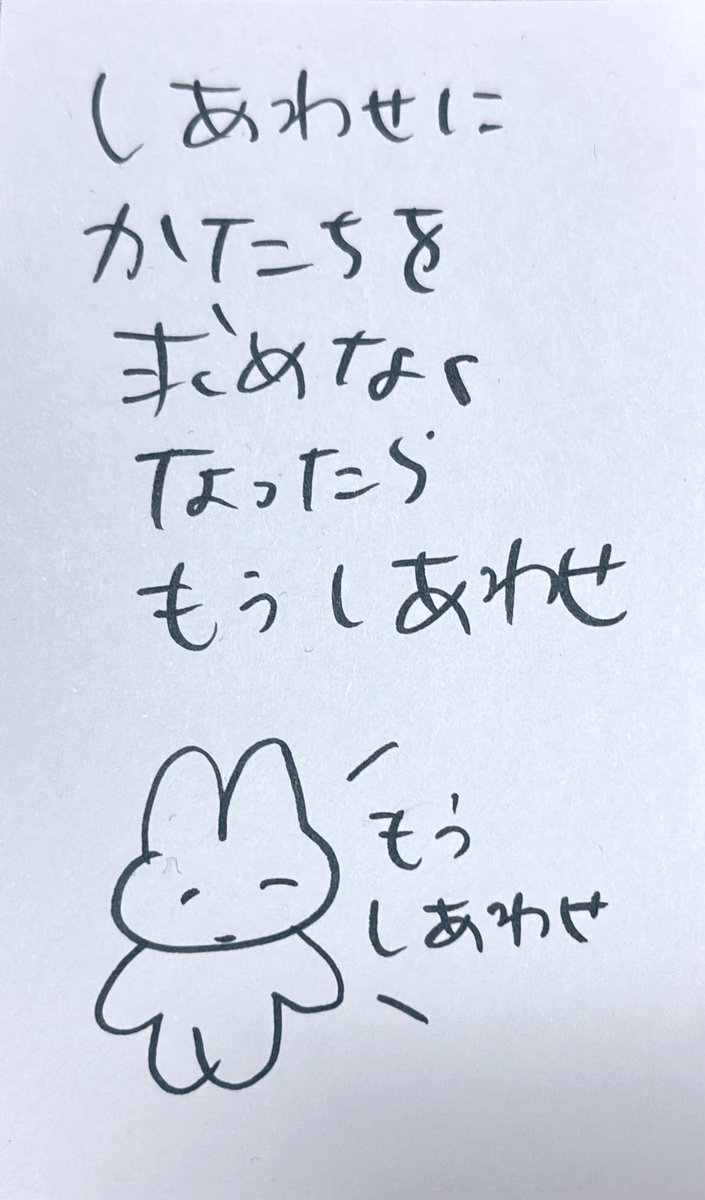 しあわせに
かたちを
求めなく
なったら
もうしあわせ
もう
しあわせ